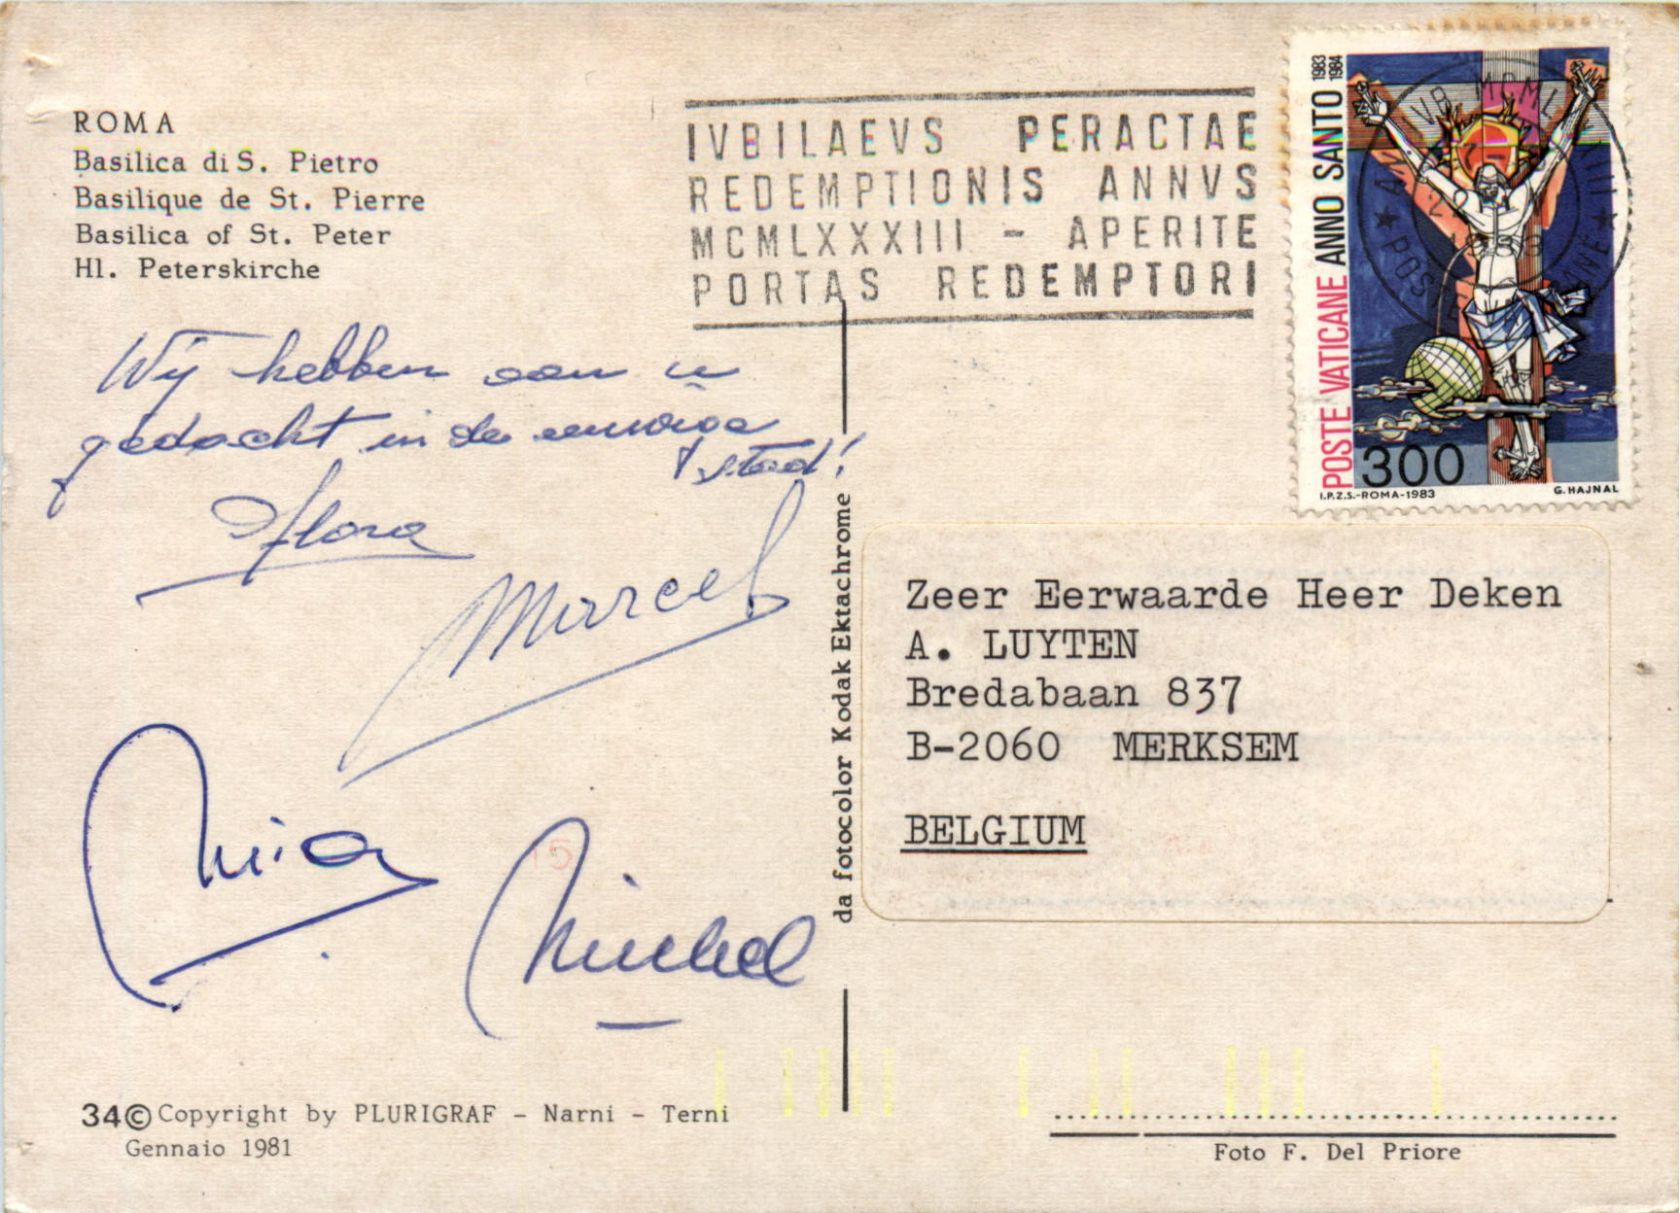 ROMA
Basilica di S. Pietro
Basilique de St. Pierre
Basilica of St. Peter
Hl. Peterskirche
IVBILAEVS PERACTAE
REDEMPTIONIS ANNVS
MCMLXXXIII - APERITE
PORTAS REDEMPTORI
POSTE VATICANE ANNO SANTO 1983 1984
300
I.P.Z.S.-ROMA-1983 G. HAJNAL
Wij hebben aan u
gedacht in de eeuwige
stad!
Flora
Marcel
Mia
Michel
da fotocolor Kodak Ektachrome
Zeer Eerwaarde Heer Deken
A. LUYTEN
Bredabaan 837
B-2060 MERKSEM
BELGIUM
34 © Copyright by PLURIGRAF - Narni - Terni
Gennaio 1981
Foto F. Del Priore